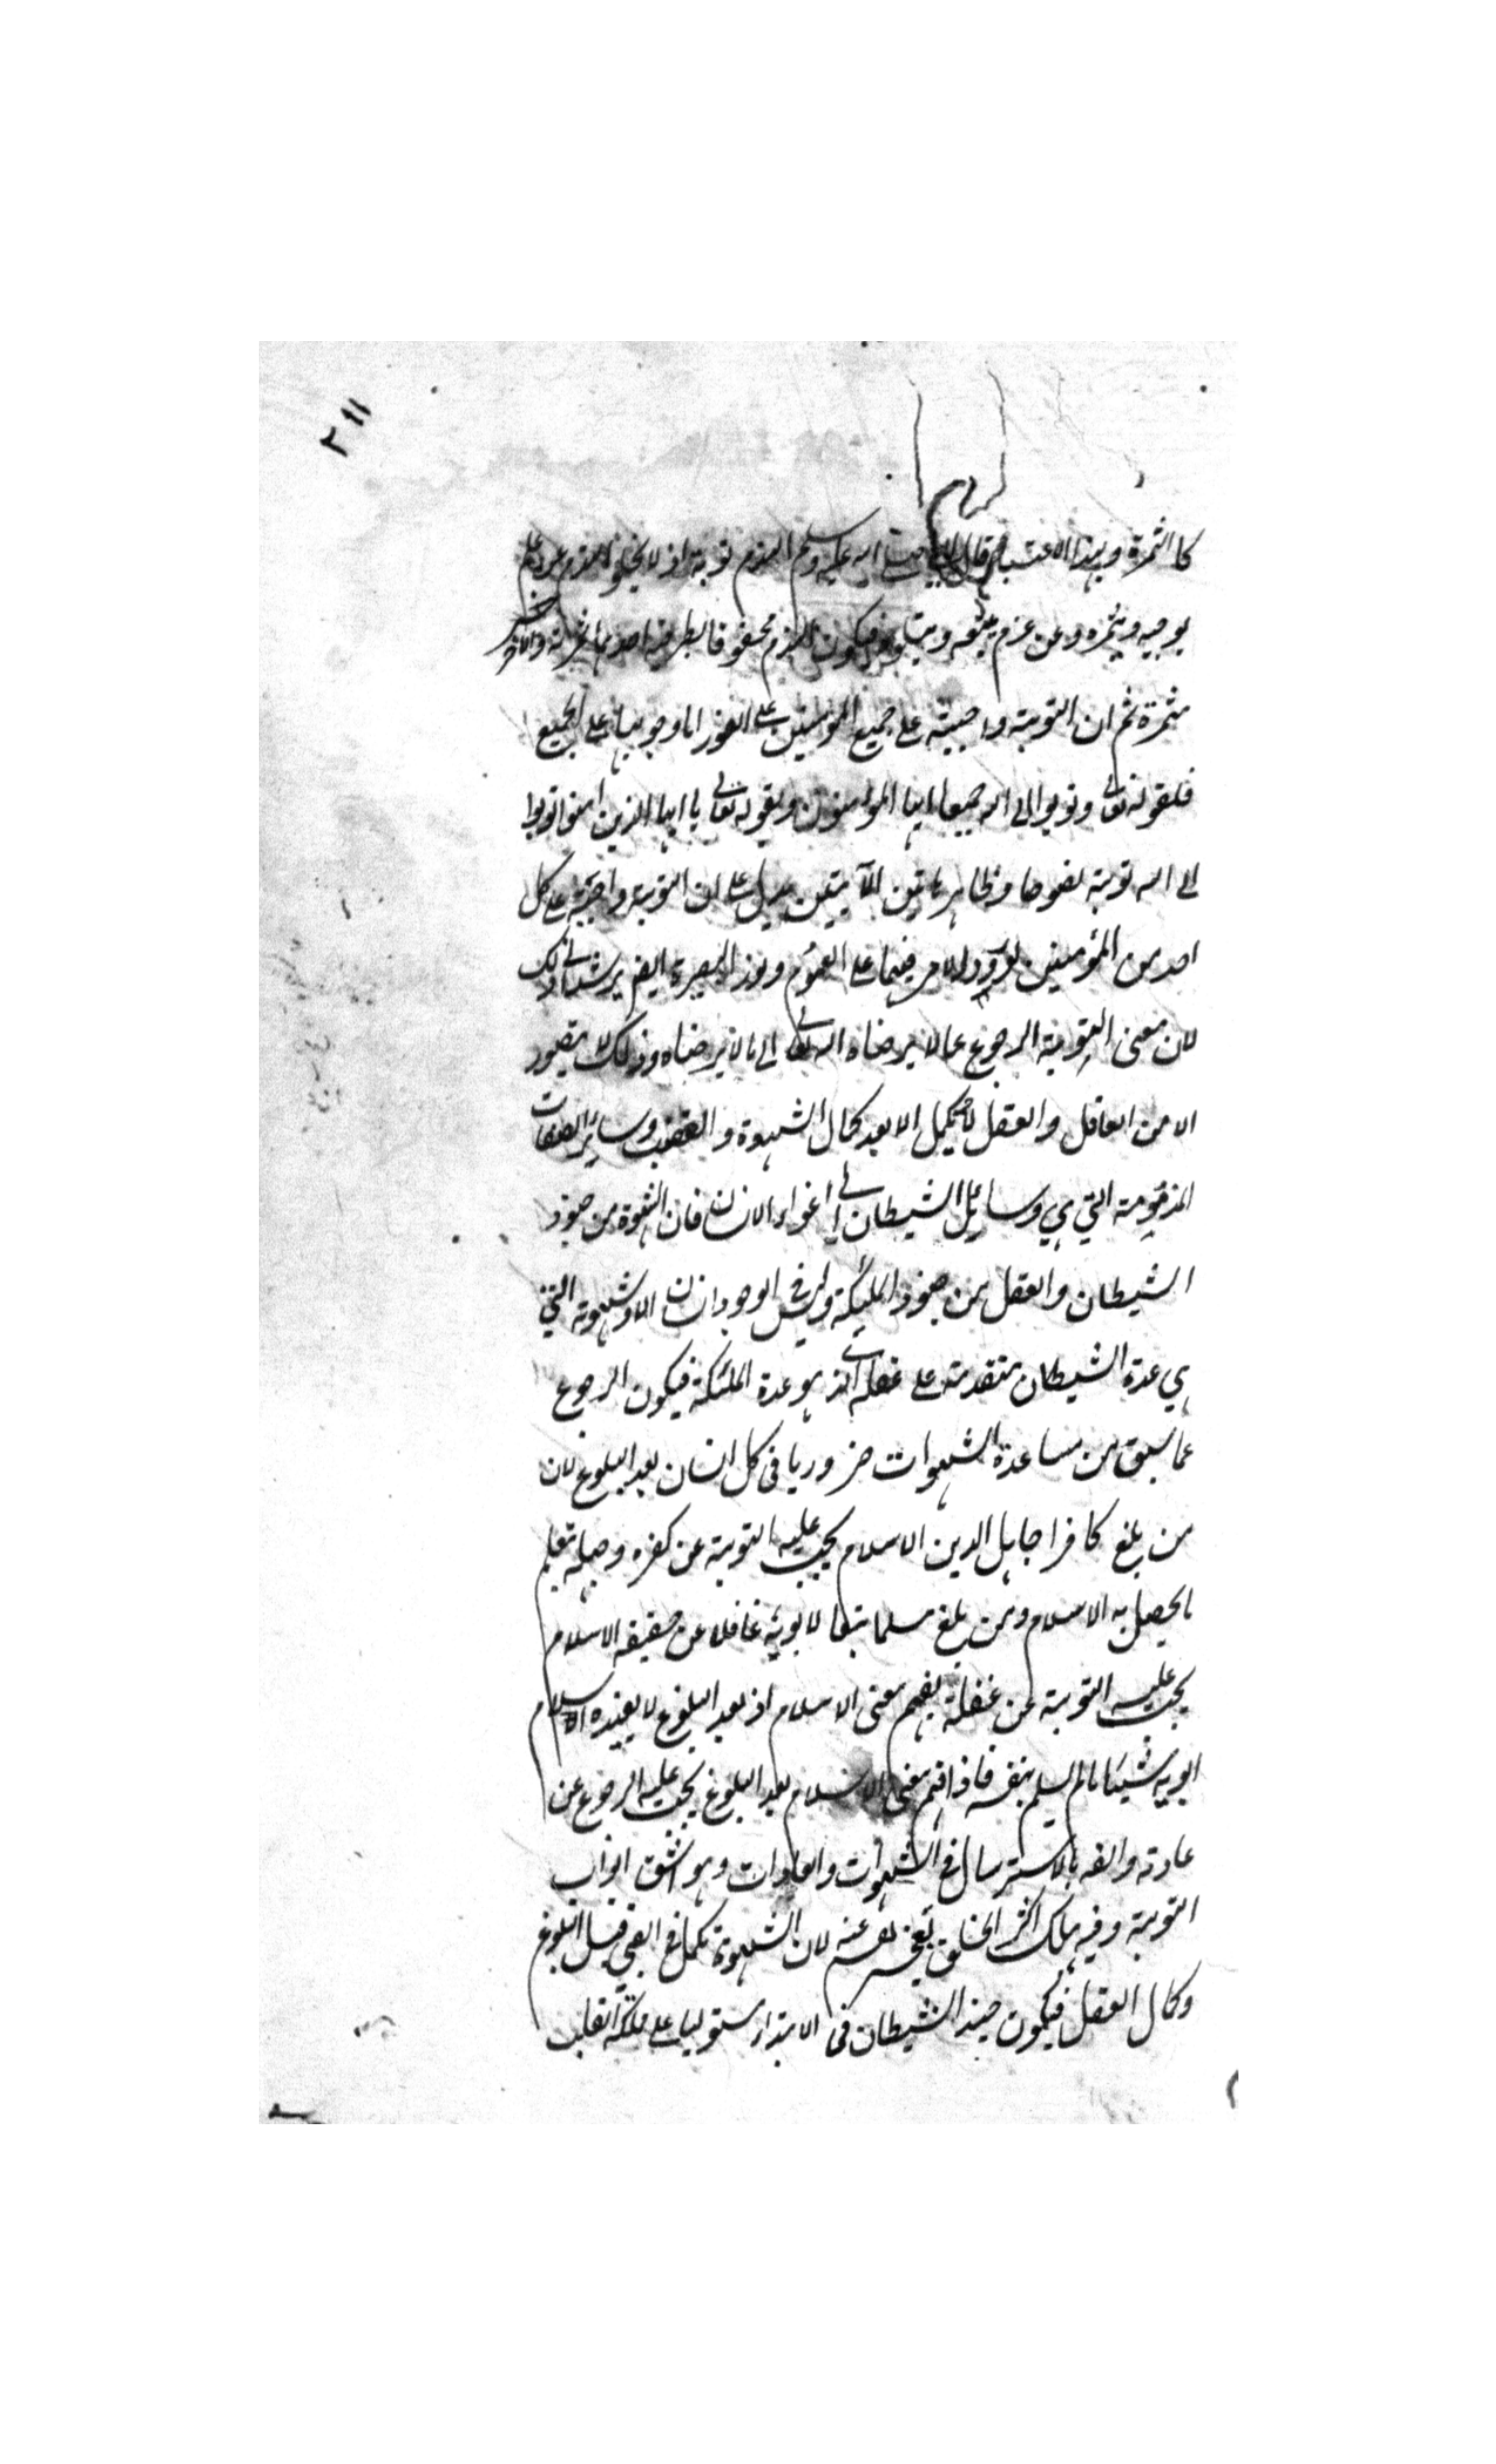 ٢١١
كالثمرة وبهذا الاعتبار قال النبي صلى الله عليه وسلم الندم توبة اذ لا يخلو الندم عن علم
يوجبه ويثمره وعن عزم يتبعه ويتلوه فيكون الندم محفوفا بطرفيه احدهما ثمرته والاخر
مثمرة ثم ان التوبة واجبة على جميع المؤمنين على الفور اما وجوبها على الجميع
فلقوله تعالى وتوبوا الى الله جميعا ايها المؤمنون ولقوله تعالى يا ايها الذين امنوا توبوا
الى الله توبة نصوحا وظاهر هاتين الآيتين يدل على ان التوبة واجبة على كل
احد من المؤمنين لورود الامر فيهما على العموم ونور البصيرة ايضا يرشد الى ذلك
لان معنى التوبة الرجوع عما لا يرضاه الله تعالى الى ما يرضاه وذلك لا يتصور
الا من العاقل والعقل لا يكمل الا بعد كمال الشهوة والغضب وسائر الصفات
المذمومة التي هي وسائل الشيطان الى اغواء الانسان فان الشهوة من جنود
الشيطان والعقل من جنود الملئكة وليس في الوجود انسان الا وشهوته التي
هي عدة الشيطان متقدمة على عقله الذي هو عدة الملئكة فيكون الرجوع
عما سبق من مساعدة الشهوات ضروريا في كل انسان بعد البلوغ لان
من بلغ كافرا جاهل الدين الاسلام يجب عليه التوبة عن كفره وجهله بتعلم
ما يحصل به الاسلام ومن بلغ مسلما تبعا لابويه غافلا عن حقيقة الاسلام
يجب عليه التوبة عن غفلة بفهم معنى الاسلام اذ بعد البلوغ لا يفيده اسلام
ابويه شيئا ما لم يسلم بنفسه فاذا فهم معنى الاسلام بعد البلوغ يجب عليه الرجوع عن
عادته والفه بالاسترسال في الشهوات والعادات وهو اشق ابواب
التوبة وفيه هلك اكثر الخلق بعجز نفسه عنه لان الشهوة تكمل في الصبي قبل البلوغ
وكمال العقل فيكون جند الشيطان في الابتداء مستوليا على مملكة القلب